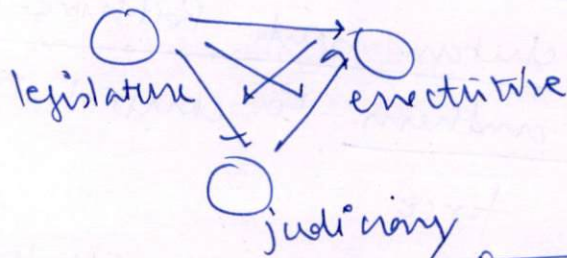 legislature executive
judiciary